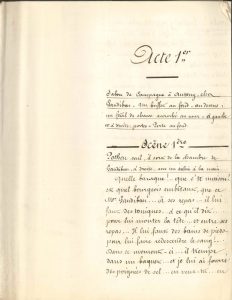 Acte 1er
Salon de Campagne à Auteuil, chez
Gaudibon. Un buffet au fond. au dessus
un fusil de chasse accroché au mur. à gauche
et à droite, portes. Porte au fond.
Scène 1ère
seul, il sort de la chambre de
Gaudibon, à droite, avec un à la main
quelle baraque! que c'te maison!
et quel bourgeois embêtant, que ce
Mr Gaudibon... à ses repas.. il lui
faut des toniques.. à ce qu'il dit..
pour lui monter la tête.. et entre ses
repas.. Il lui faut des bains de pieds
pour lui faire redescendre le sang!..
Dans ce moment.. il
dans un baquet.. et je lui ai fourré
des poignées de sel..